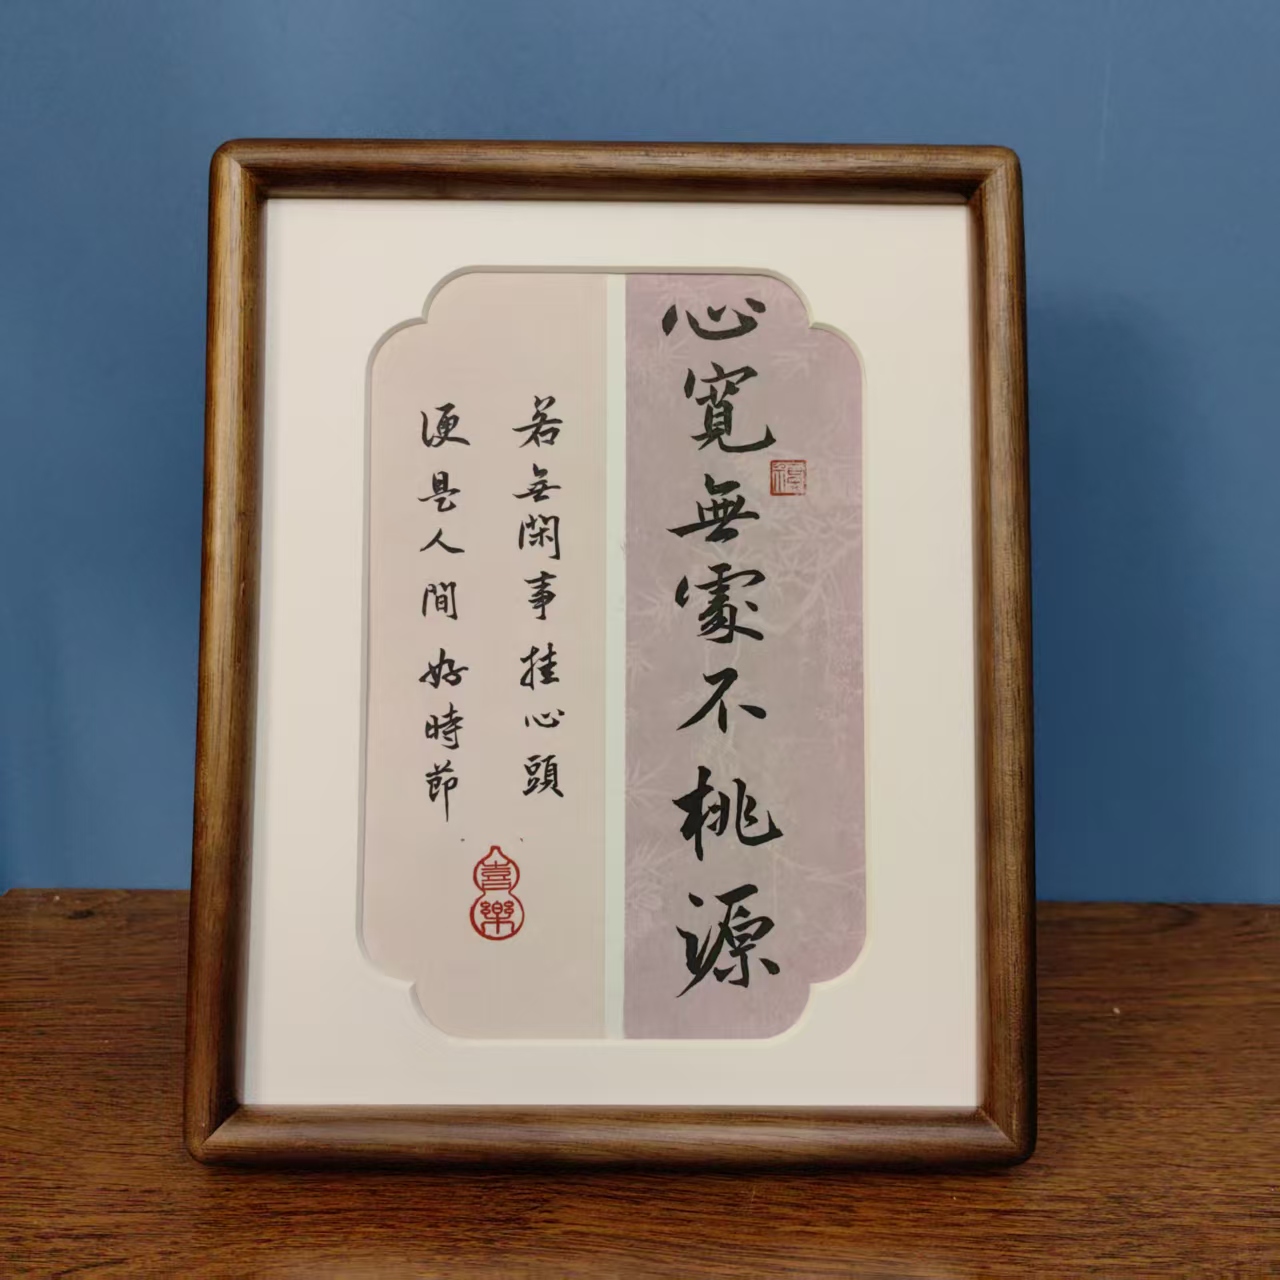 心寬無處不桃源
若無閑事挂心頭
便是人間好時節
喜樂